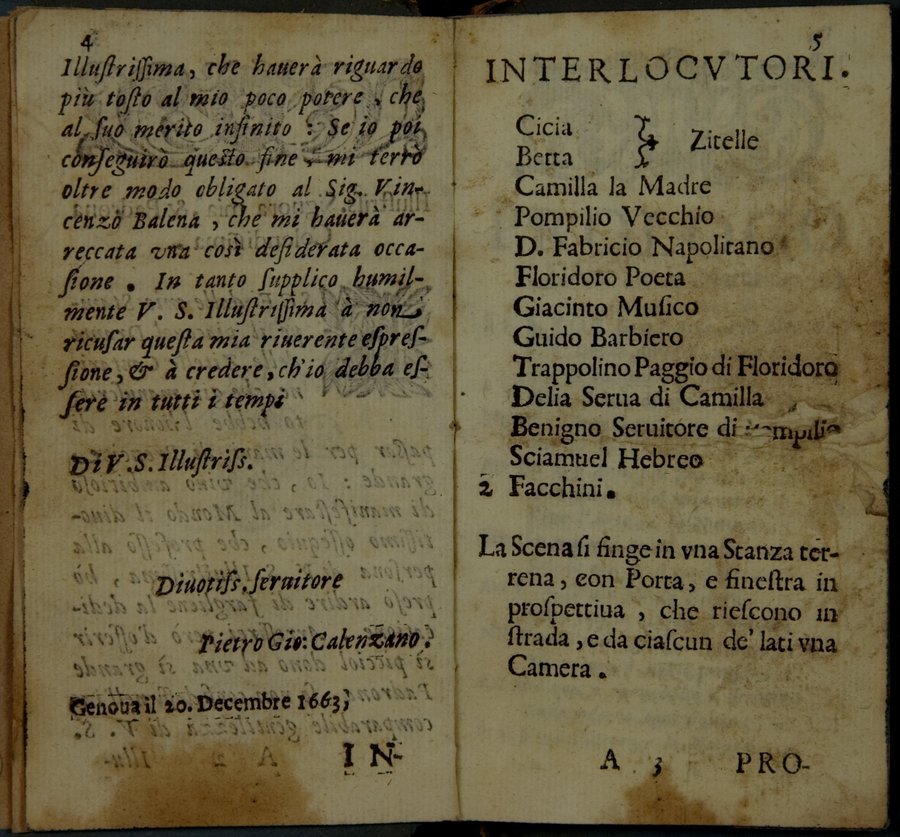 4
Illuſtriſſima, che hauerà riguardo
più toſto al mio poco potere, che
al ſuo merito infinito : Se io poi
conſeguirò queſto fine, mi terrò
oltre modo obligato al Sig. Vin-
cenzo Balena, che mi hauerà ar-
reccata vna così deſiderata occa-
ſione. In tanto ſupplico humil-
mente V. S. Illuſtriſſima à non
ricuſar queſta mia riuerente eſpreſ-
ſione, & à credere, ch'io debba eſ-
ſere in tutti i tempi
Di V.S. Illuſtriſs.
Diuotiſs. ſeruitore
Pietro Gio: Calenzano.
Genoua il 20. Decembre 1663;
IN-
5
INTERLOCVTORI.
Cicia
Betta
Zitelle
Camilla la Madre
Pompilio Vecchio
D. Fabricio Napolitano
Floridoro Poeta
Giacinto Muſico
Guido Barbiero
Trappolino Paggio di Floridoro
Delia Serua di Camilla
Benigno Seruitore di Pompilio
Sciamuel Hebreo
2 Facchini.
La Scena ſi finge in vna Stanza ter-
rena, con Porta, e fineſtra in
proſpettiua, che rieſcono in
ſtrada, e da ciaſcun de' lati vna
Camera.
A 3 PRO-